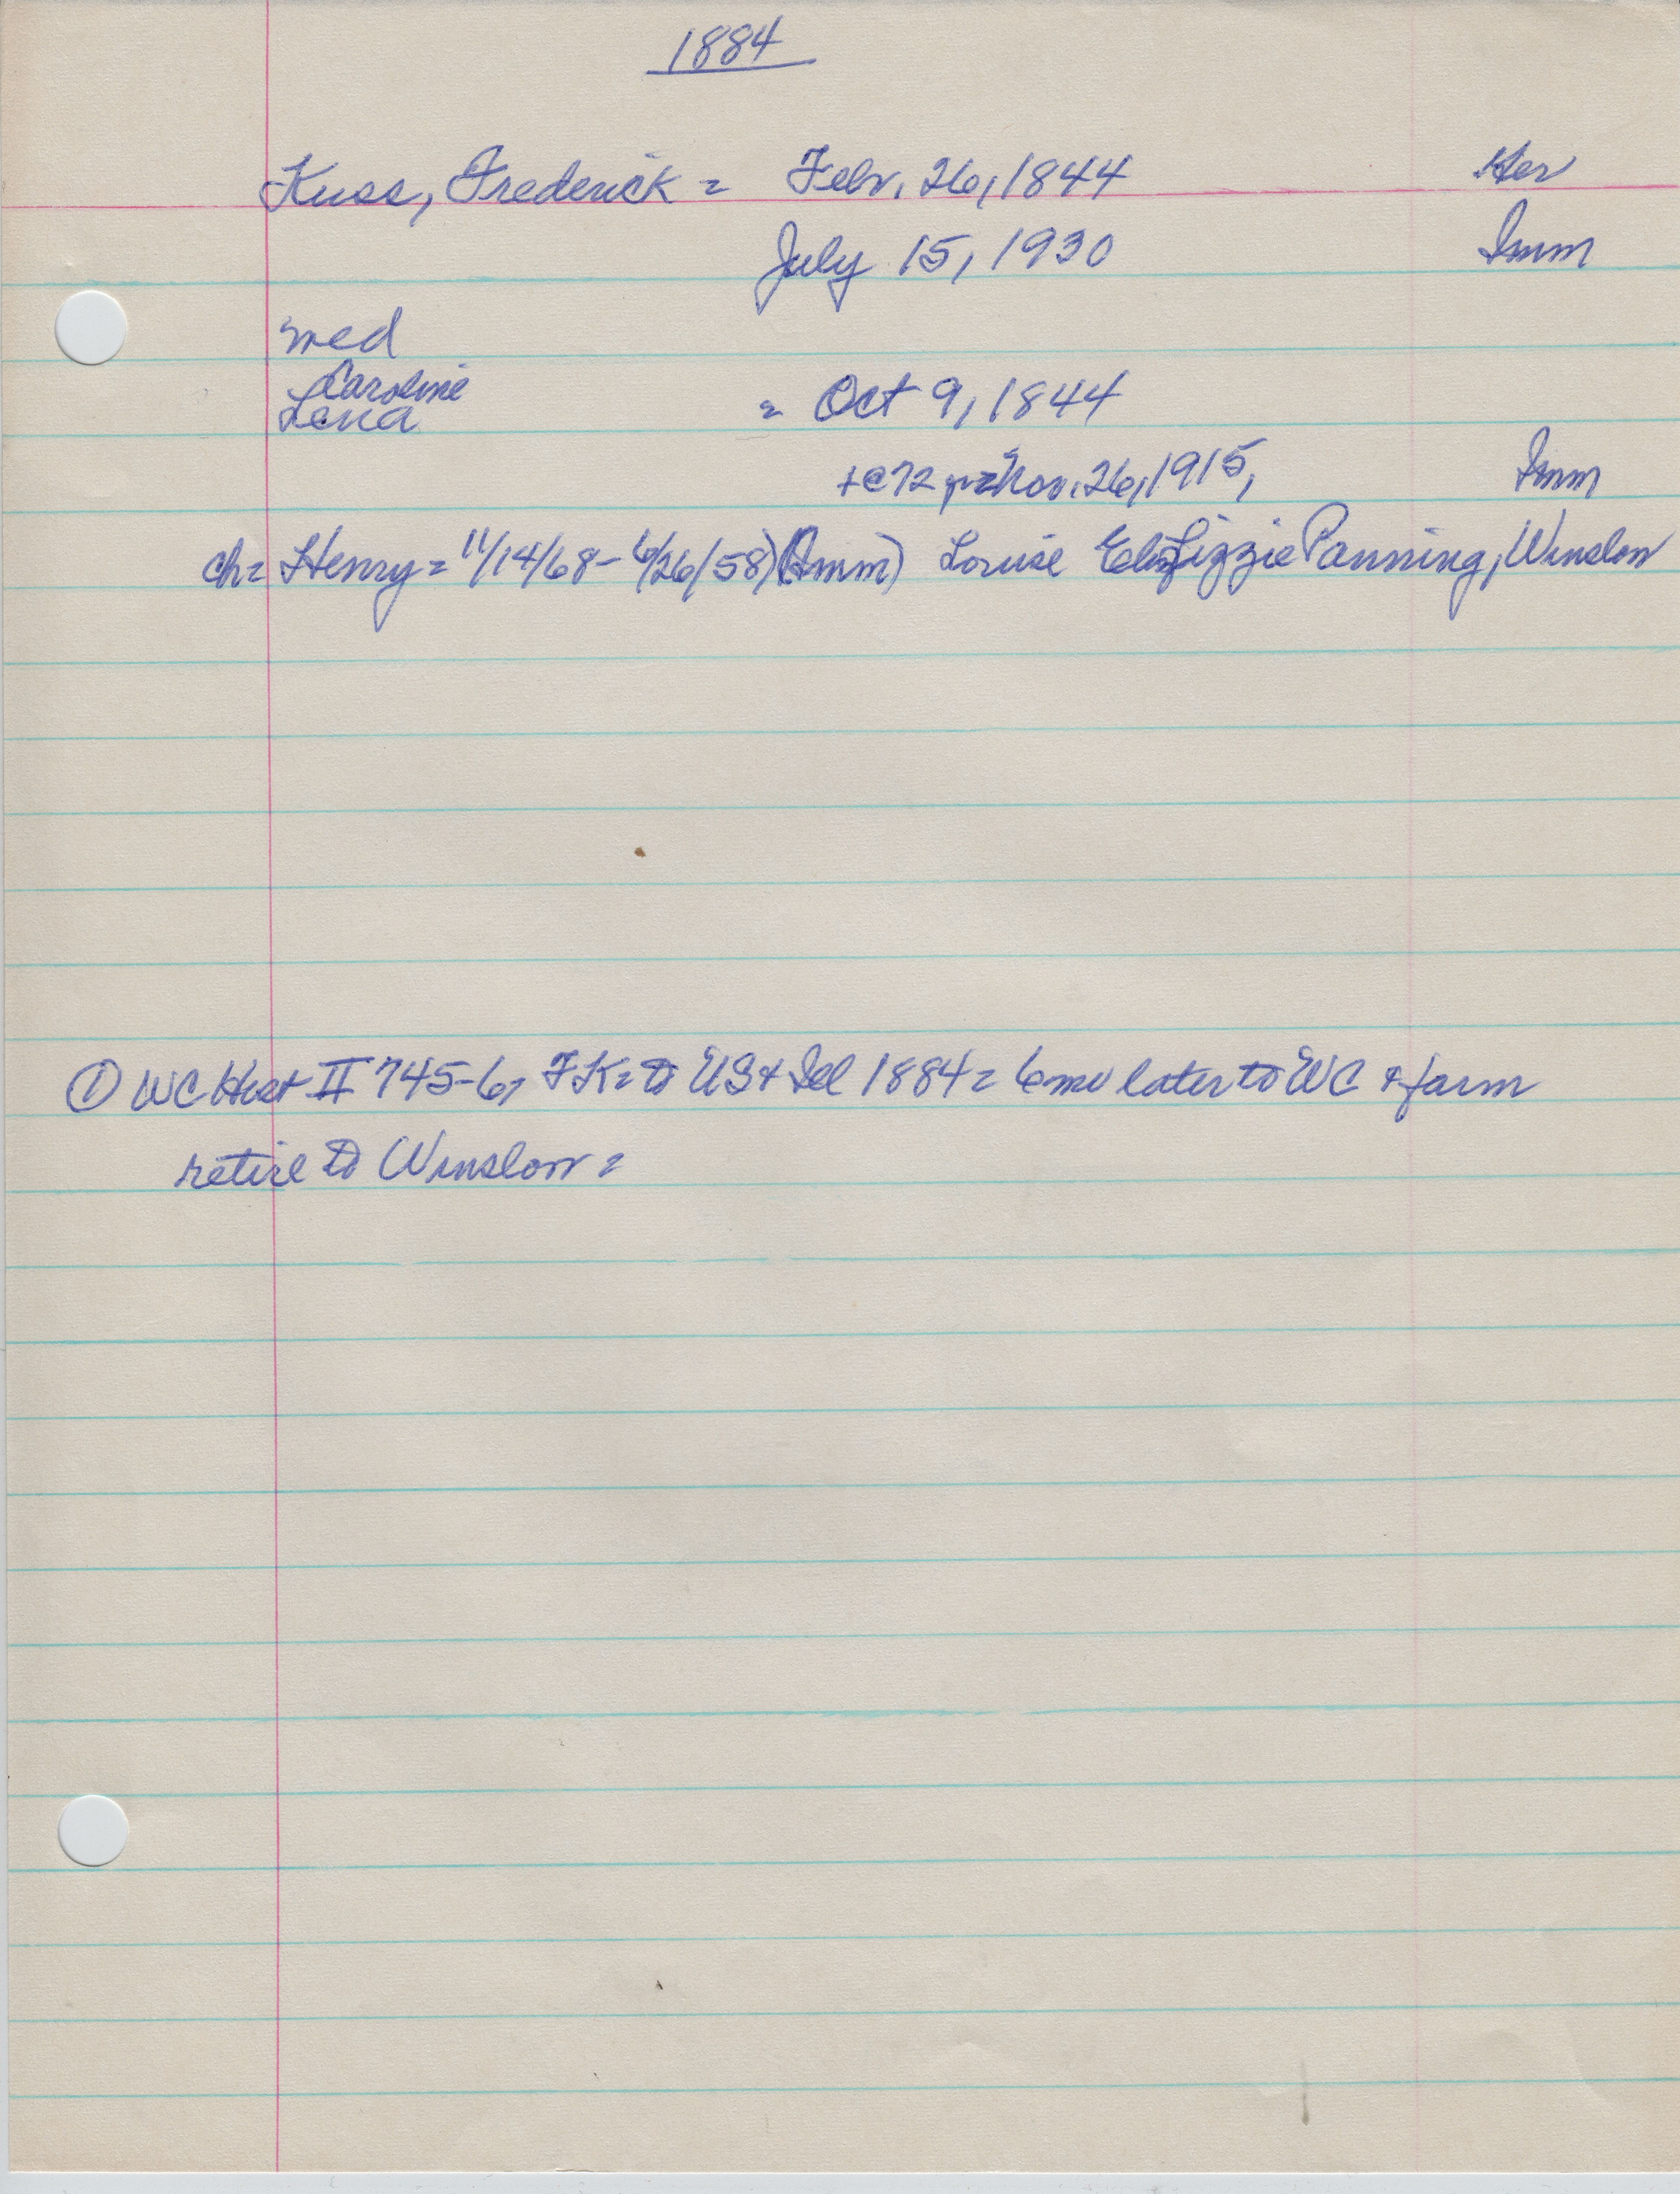 1884
Kuss, Frederick = Febr. 26, 1844 Her
July 15, 1930 Imm
med
Caroline
Lena = Oct 9, 1844
+@72 yr = Nov. 26, 1915, Imm
ch= Henry = 11/14/68 - 6/26/58) (Imm) Louise Lizzie Panning, Winslow
① WC Hist II 745-6, FK = to US & 1884 = 6 mo later to WC & farm
retire to Winslow =